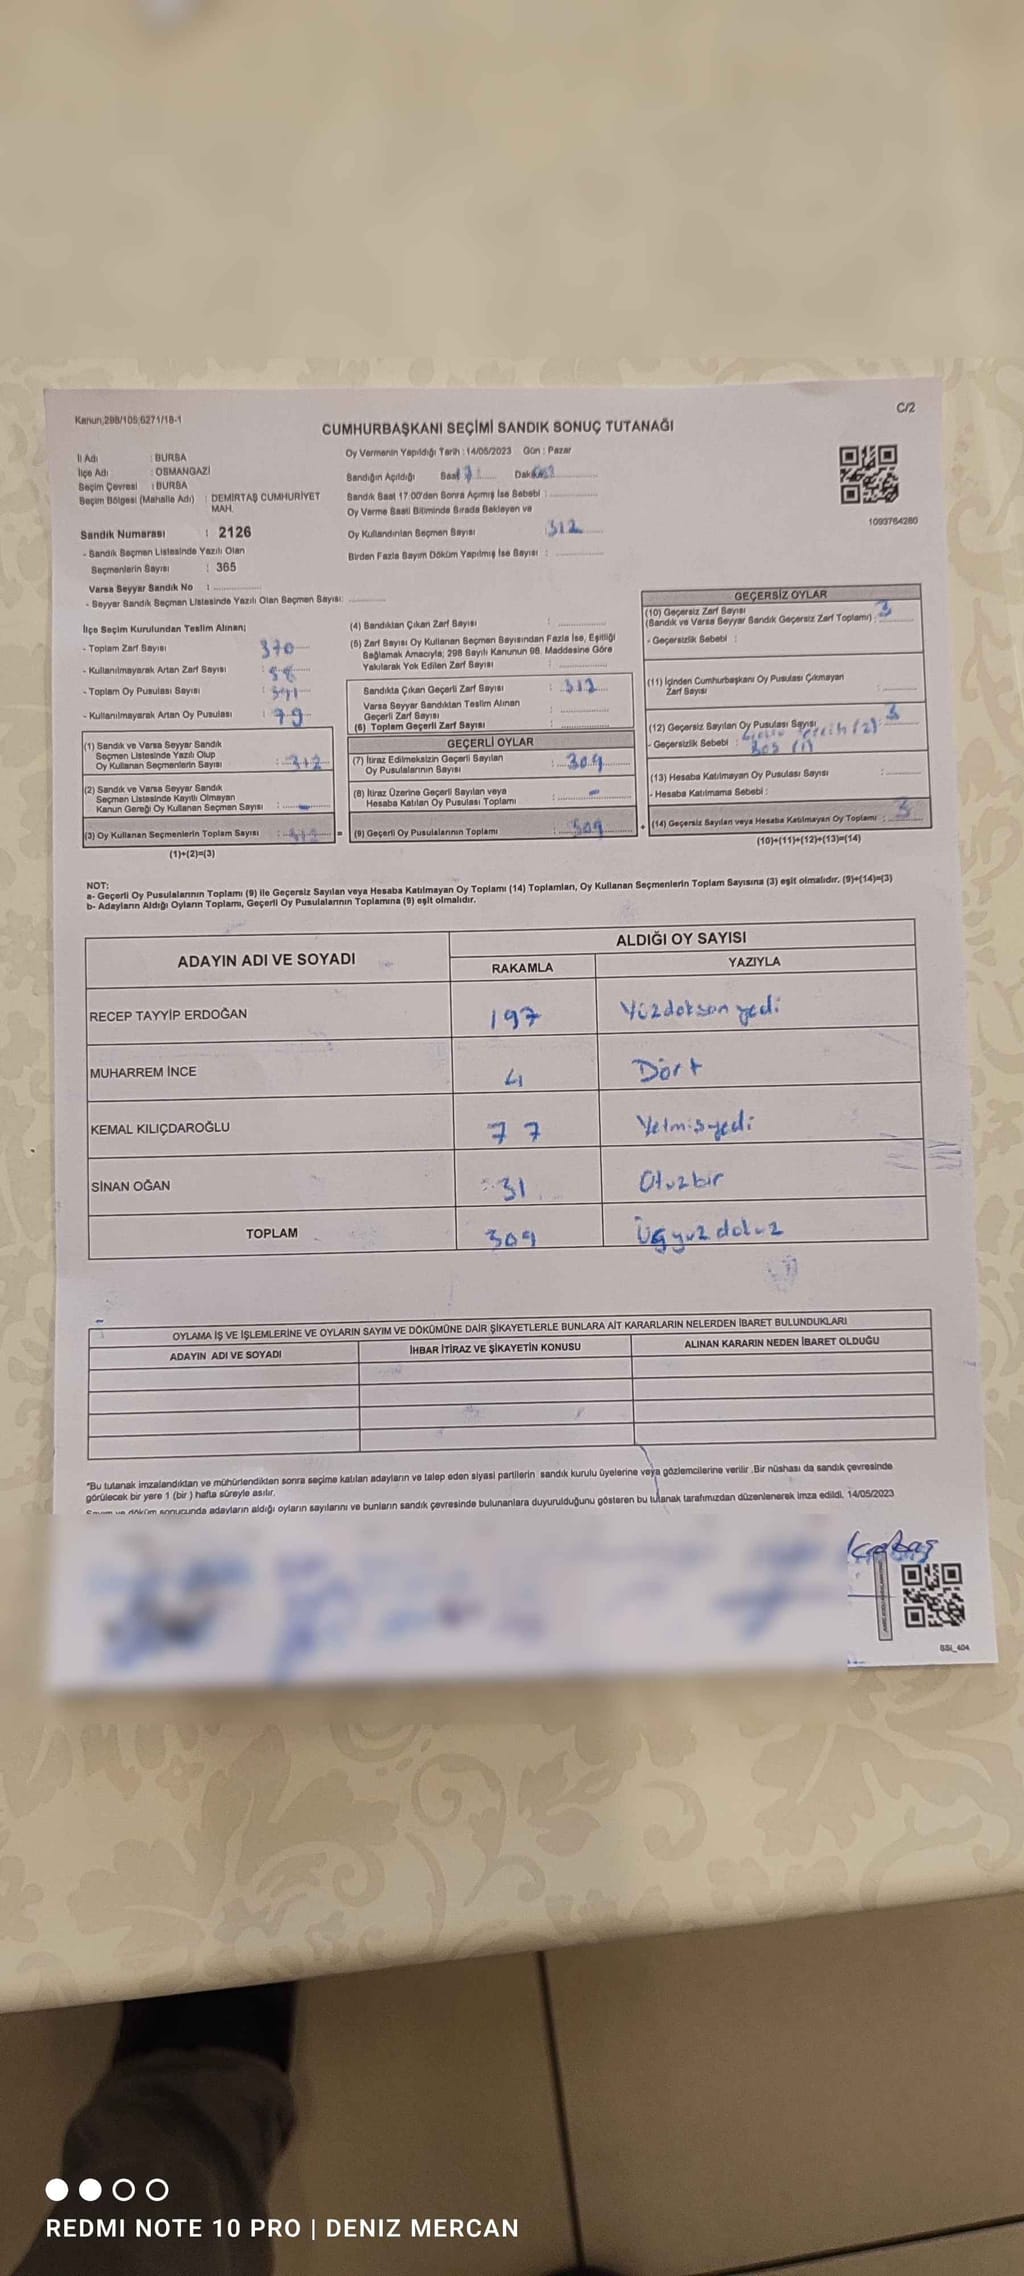 Kanun;298/105;6271/18-1
C/2
CUMHURBAŞKANI SEÇİMİ SANDIK SONUÇ TUTANAĞI
İl Adı : BURSA
İlçe Adı : OSMANGAZİ
Seçim Çevresi : BURSA
Seçim Bölgesi (Mahalle Adı) : DEMİRTAŞ CUMHURİYET
MAH.
Sandık Numarası : 2126
- Sandık Seçmen Listesinde Yazılı Olan
Seçmenlerin Sayısı : 365
Varsa Seyyar Sandık No :
- Seyyar Sandık Seçmen Listesinde Yazılı Olan Seçmen Sayısı:
Oy Vermenin Yapıldığı Tarih : 14/05/2023 Gün : Pazar
Sandığın Açıldığı Saat Dakika
Sandık Saat 17.00'den Sonra Açımış İse Sebebi :
Oy Verme Saati Bitiminde Sırada Bekleyen ve
Oy Kullandırılan Seçmen Sayısı : 312
Birden Fazla Sayım Döküm Yapılmış İse Sayısı :
1093764280
İlçe Seçim Kurulundan Teslim Alınan;
- Toplam Zarf Sayısı 370
- Kullanılmayarak Artan Zarf Sayısı : 58
- Toplam Oy Pusulası Sayısı :
- Kullanılmayarak Artan Oy Pusulası : 79
(1) Sandık ve Varsa Seyyar Sandık
Seçmen Listesinde Yazılı Olup
Oy Kullanan Seçmenlerin Sayısı : 312
(2) Sandık ve Varsa Seyyar Sandık
Seçmen Listesinde Kayıtlı Olmayan
Kanun Gereği Oy Kullanan Seçmen Sayısı : -
(3) Oy Kullanan Seçmenlerin Toplam Sayısı : 312 =
(1)+(2)=(3)
(4) Sandıktan Çıkan Zarf Sayısı :
(5) Zarf Sayısı Oy Kullanan Seçmen Sayısından Fazla İse, Eşitliği
Sağlamak Amacıyla; 298 Sayılı Kanunun 98. Maddesine Göre
Yakılarak Yok Edilen Zarf Sayısı :
Sandıkta Çıkan Geçerli Zarf Sayısı : 312
Varsa Seyyar Sandıktan Teslim Alınan
Geçerli Zarf Sayısı :
(6) Toplam Geçerli Zarf Sayısı :
GEÇERLİ OYLAR
(7) İtiraz Edilmeksizin Geçerli Sayılan
Oy Pusulalarının Sayısı : 309
(8) İtiraz Üzerine Geçerli Sayılan veya
Hesaba Katılan Oy Pusulası Toplamı : -
(9) Geçerli Oy Pusulalarının Toplamı : 309 +
GEÇERSİZ OYLAR
(10) Geçersiz Zarf Sayısı
(Sandık ve Varsa Seyyar Sandık Geçersiz Zarf Toplamı) : 3
- Geçersizlik Sebebi :
(11) İçinden Cumhurbaşkanı Oy Pusulası Çıkmayan
Zarf Sayısı :
(12) Geçersiz Sayılan Oy Pusulası Sayısı : 3
- Geçersizlik Sebebi : (2)
Boş (1)
(13) Hesaba Katılmayan Oy Pusulası Sayısı :
- Hesaba Katılmama Sebebi :
(14) Geçersiz Sayılan veya Hesaba Katılmayan Oy Toplamı : 3
(10)+(11)+(12)+(13)=(14)
NOT:
a- Geçerli Oy Pusulalarının Toplamı (9) ile Geçersiz Sayılan veya Hesaba Katılmayan Oy Toplamı (14) Toplamları, Oy Kullanan Seçmenlerin Toplam Sayısına (3) eşit olmalıdır. (9)+(14)=(3)
b- Adayların Aldığı Oyların Toplamı, Geçerli Oy Pusulalarının Toplamına (9) eşit olmalıdır.
ADAYIN ADI VE SOYADI
ALDIĞI OY SAYISI
RAKAMLA YAZIYLA
RECEP TAYYİP ERDOĞAN 197 Yüzdoksan yedi
MUHARREM İNCE 4 Dört
KEMAL KILIÇDAROĞLU 77 Yetmişyedi
SİNAN OĞAN 31 Otuzbir
TOPLAM 309 Üçyuz dokuz
OYLAMA İŞ VE İŞLEMLERİNE VE OYLARIN SAYIM VE DÖKÜMÜNE DAİR ŞİKAYETLERLE BUNLARA AİT KARARLARIN NELERDEN İBARET BULUNDUKLARI
ADAYIN ADI VE SOYADI İHBAR İTİRAZ VE ŞİKAYETİN KONUSU ALINAN KARARIN NEDEN İBARET OLDUĞU
"Bu tutanak imzalandıktan ve mühürlendikten sonra seçime katılan adayların ve talep eden siyasi partilerin sandık kurulu üyelerine veya gözlemcilerine verilir .Bir nüshası da sandık çevresinde
görülecek bir yere 1 (bir ) hafta süreyle asılır.
Sayım ve döküm sonucunda adayların aldığı oyların sayılarını ve bunların sandık çevresinde bulunanlara duyurulduğunu gösteren bu tutanak tarafımızdan düzenlenerek imza edildi. 14/05/2023
SSI_404
REDMI NOTE 10 PRO | DENIZ MERCAN